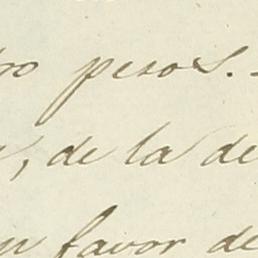 ro pesos.
, de la de
n favor de